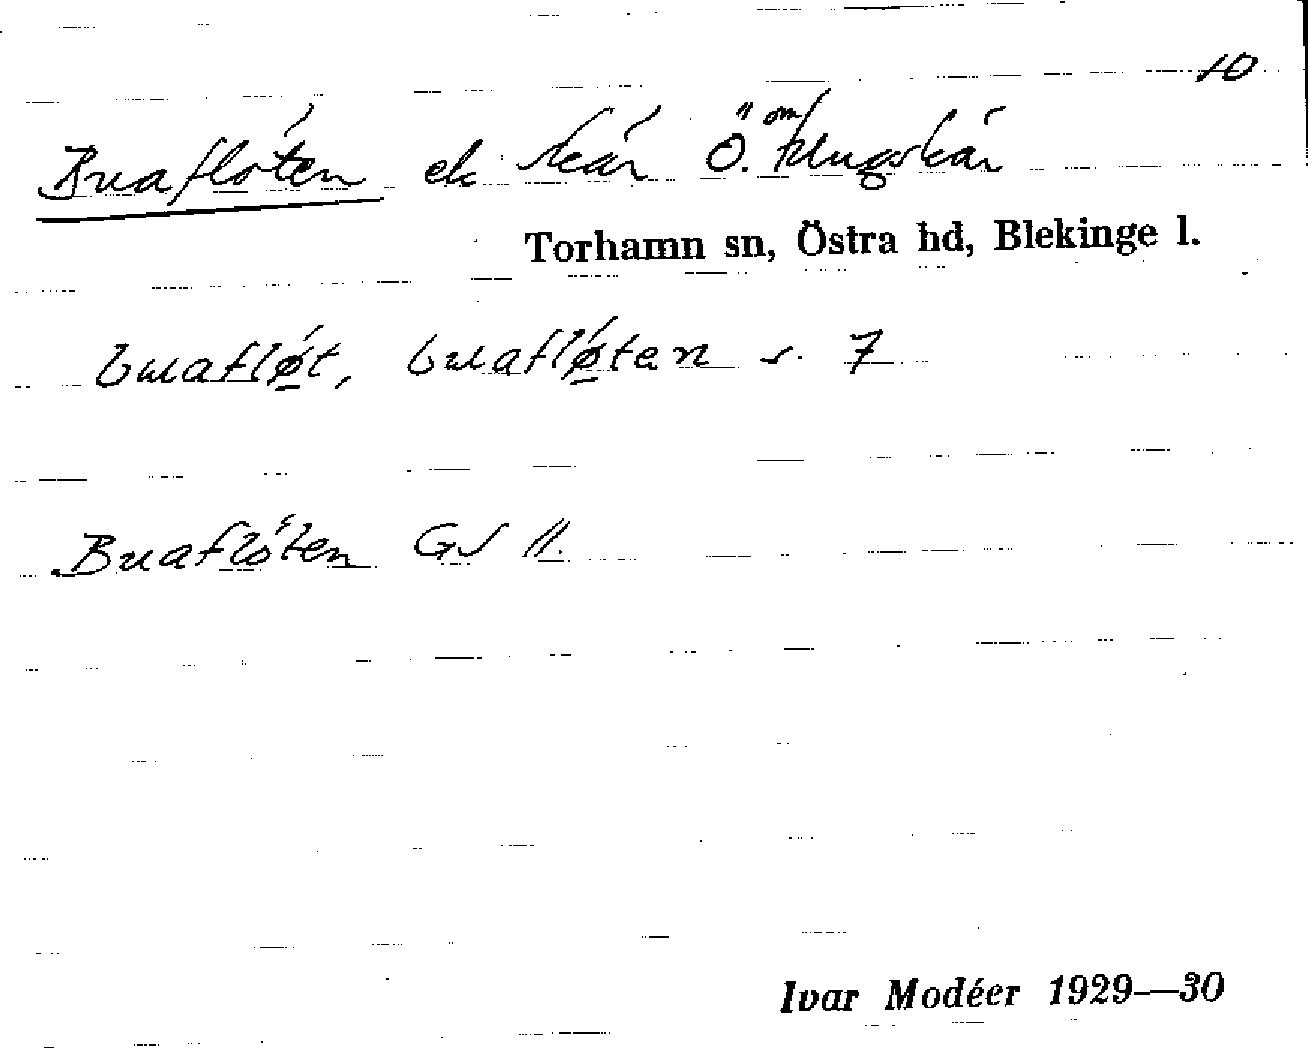 10
Buaflöten ek skär Ö. om Klugskär
Torhamn sn, Östra hd, Blekinge l.
buafløt, buafløten s. 7
Buaflöten GS 11.
Ivar Modéer 1929—30